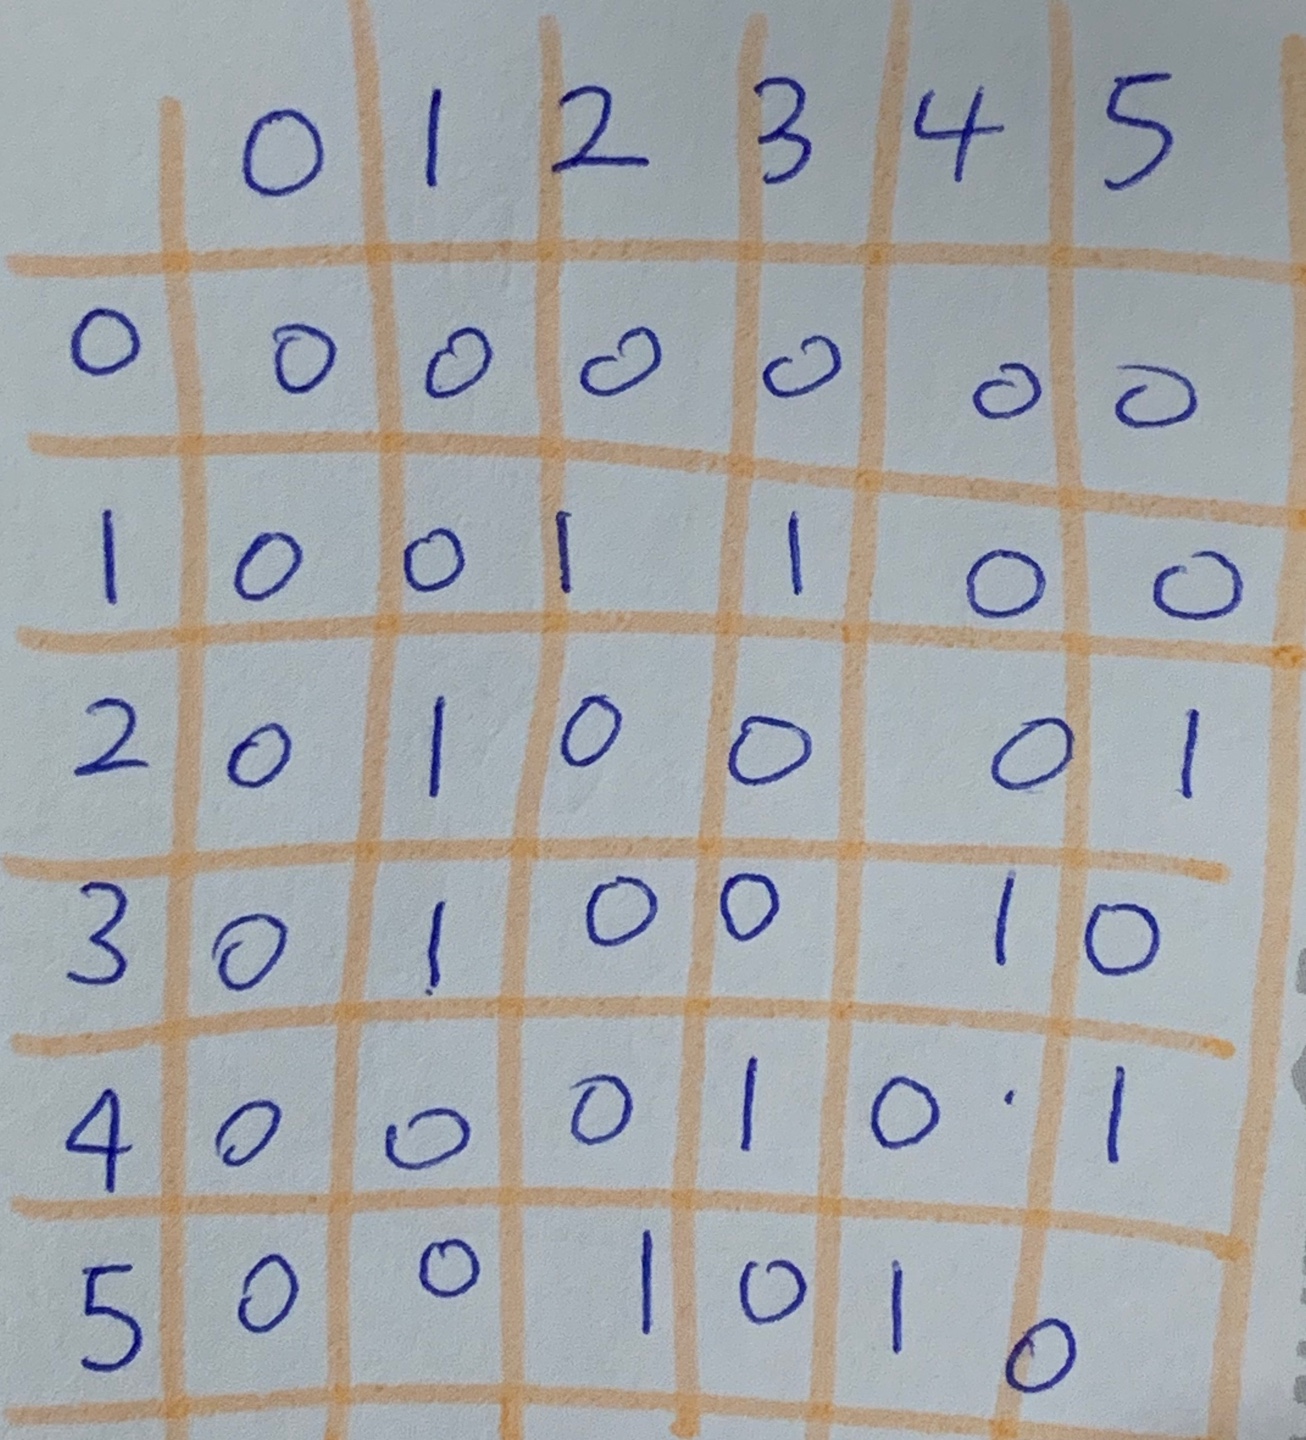 0 1 2 3 4 5
0 0 0 0 0 0 0
1 0 0 1 1 0 0
2 0 1 0 0 0 1
3 0 1 0 0 1 0
4 0 0 0 1 0 1
5 0 0 1 0 1 0